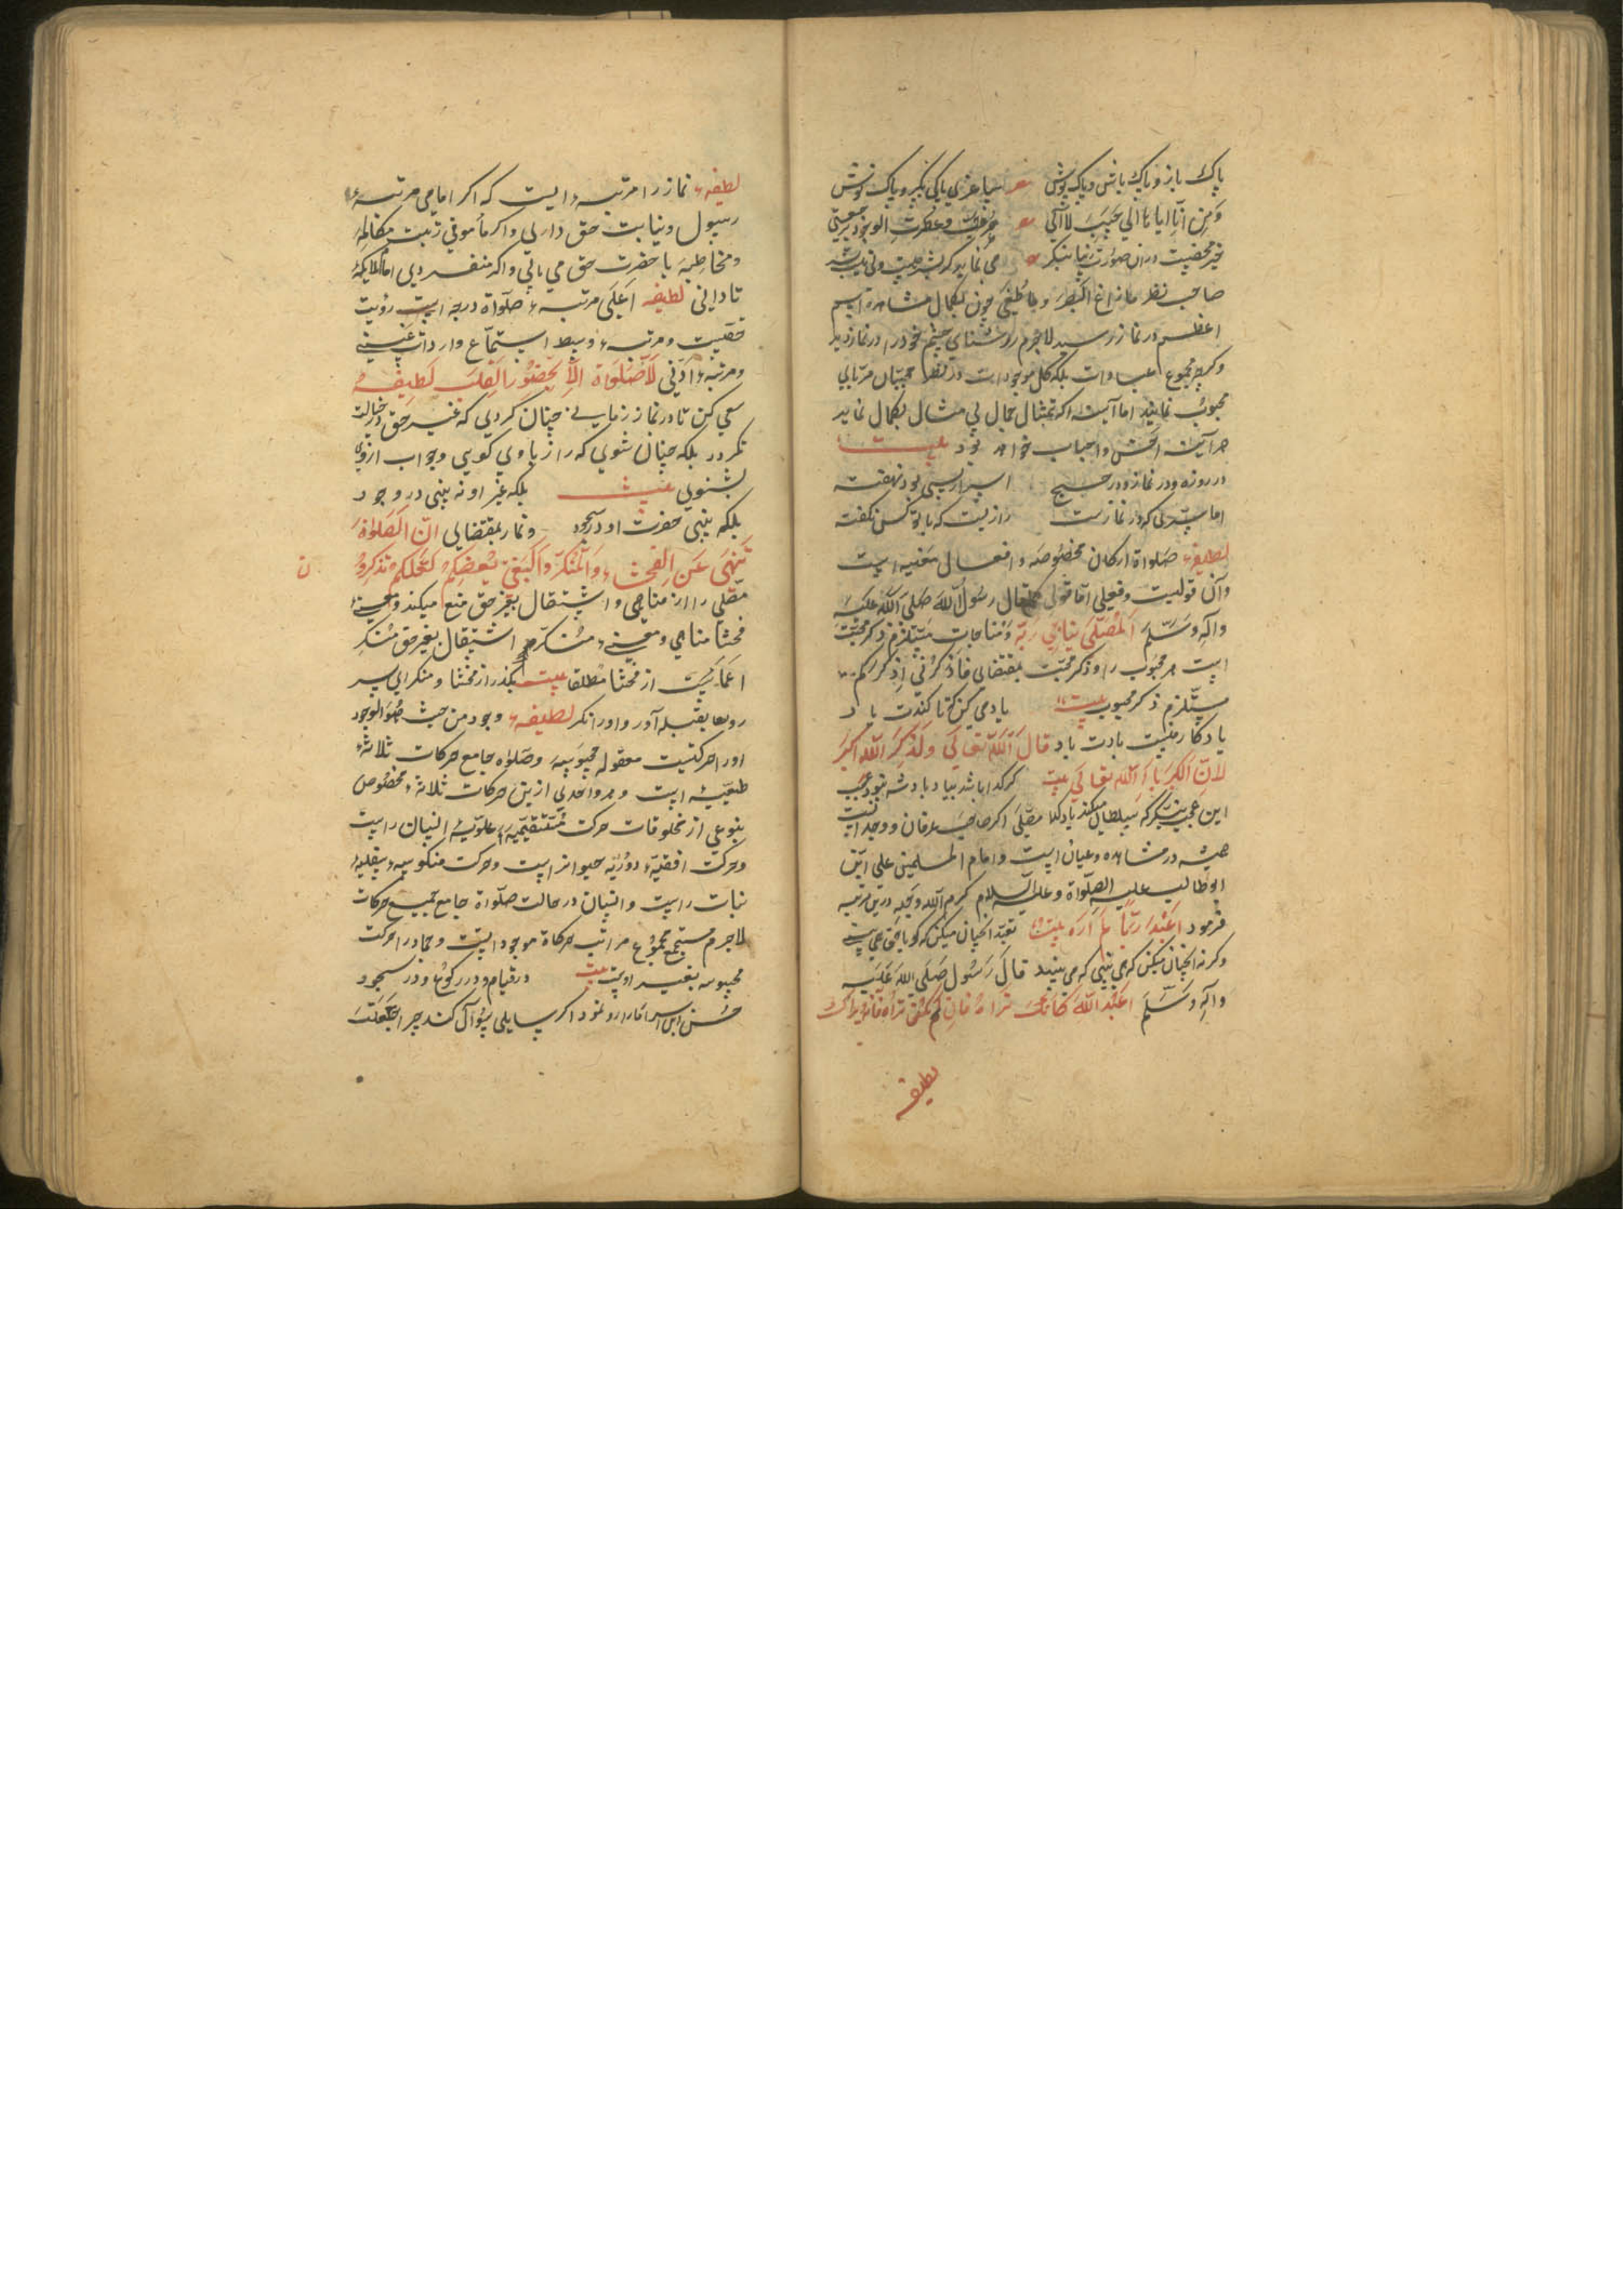 پاک باز و پاک باش و پاک پوش
خیر محضیت در آن صورت زیبا بنگر
صاحب نظر ما زاغ البصر و ما طغی چون بکمال مشاهده
اعظم در نماز رسید لاجرم روشنای چشم خود را در نماز دید
و کرچه مجموع عبادات بلکه کل موجودات در نظر محبان مرّیای
محبوب نمایند اما آینه که تمثال جمال بی مثال بکمال نماید
هر آینه احسن و احباب خواهد بود بیت
در روزه و در نماز و در حج اسرار بسی بود نهفته
اما سرّی که در نمازست رازیست که با تو کس نکفته
لطیفه صلواة ارکان مخصوصه و افعال معینه است
و آن قولیست و فعلی اما قولی قال رسول الله صلی الله علیه
و آله و سلم المصلی یناجی ربه و مناجات مستلزم ذکر محبت
است مر محبوب را و ذکر محبّ بمقتضای فاذکرونی اذکرکم
مستلزم ذکر محبوب بیت یاد می کن که تا کندت یاد
یادکارمنیت بادت یاد قال الله تعالی ولذکر الله اکبر
لان الکبریاء الله تعالی بیت کر کدا باشد بیاد پادشه نبود عجب
این عجب بنگر که سلطان میکند یاد کدا مصلی اکر صاحب عرفان و وجدانیت
همیشه در مشاهده و عیان است و امام المسلمین علی ابن
ابوطالب علیه الصلواة و علیه السلام کرم الله وجهه درین مرتبه
فرمود اعبد ربّا لم اره بیت تعبد آنچنان میکن که کویا حق همی بینی
وکرنه آنچنان میکن که می بینی که می بیند قال رسول صلی الله علیه
و آله و سلم اعبد الله کانک تراه فان لم تکن تراه فانه یراک
لطیفه
لطیفه نماز را مرتبه ایست که اکر امامی مرتبه
رسول و نیابت حق داری و اکر مأمومی زیبت مکالمه
و مخاطبه با حضرت حق می یابی و اکر منفردی امام ملایکه
تا دانی لطیفه اعلی مرتبه صلواة درجه است رؤیت
حقیت و مرتبه وسط استماع واردات غیبی
و مرتبه ادنی لا صلواة الا بحضور القلب لطیفه
سعی کن تا در نماز زمانی چنان کردی که غیر حق در خیالت
نکردد بلکه چنان شوی که راز با وی کویی و جواب ازوی
بشنوی بیت بلکه غیر او نه بینی در وجود
بلکه بینی حضرت او در سجود و نماز بمقتضای انّ الصلوة
تنهی عن الفحشاء والمنکر والبغی یعظکم لعلکم تذکرون
مصلی را از مناهی و اشتغال بغیر حق منع میکند و معنی
فحشا مناهی و معنی منکر اشتغال بغیر حق منکر
اعمّیت از فحشا مطلقا بیت بکذر از فحشا و منکر ای پسر
رو بما بقبله آور و اورا نکر لطیفه وجود من حیث هو الوجود
اورا حرکتیت معقوله محبوسه و صلواه جامع حرکات ثلاثه
طبیعیه است و هر واحدی ازین حرکات ثلاثه مخصوص
بنوعی از مخلوقات حرکت مستقیمه علویه انسان راست
و حرکت افقیه دوریه حیوانراست و حرکت منکوسه سفلیه
نبات راست و انسان در حالت صلواة جامع جمیع حرکات
لاجرم مستجمع مجموع مراتب حرکاة موجودات و جماد را حرکت
محبوسه بغیر اوست بیت در قیام و در رکوع و در سجود
حسن این اسرار ما را رو نمود اکر سایلی سؤال کند چرا جعلت